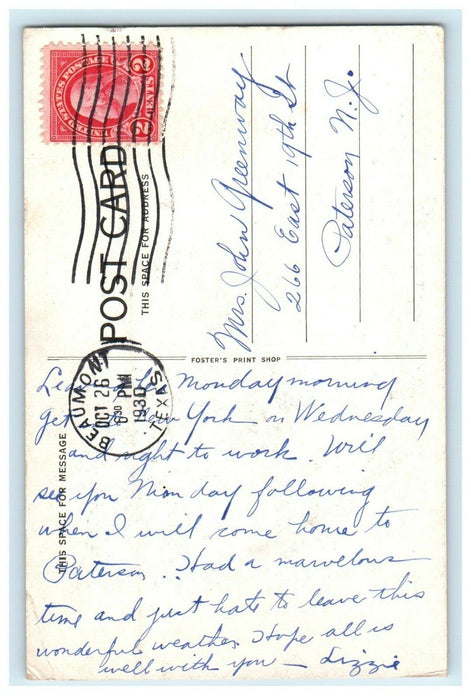 UNITED STATES POSTAGE
2 CENTS 2
POST CARD
THIS SPACE FOR ADDRESS
Mrs. John Greenway
266 East 19th St
Paterson N.J.
FOSTER'S PRINT SHOP
BEAUMONT
OCT 26
8 30 PM
TEXAS
THIS SPACE FOR MESSAGE
Monday morning
get York on Wednesday
and right to work. Will
see you Monday following
when I will come home to
Paterson.. Had a marvelous
time and just hate to leave this
wonderful weather. Hope all is
well with you — Lizzie